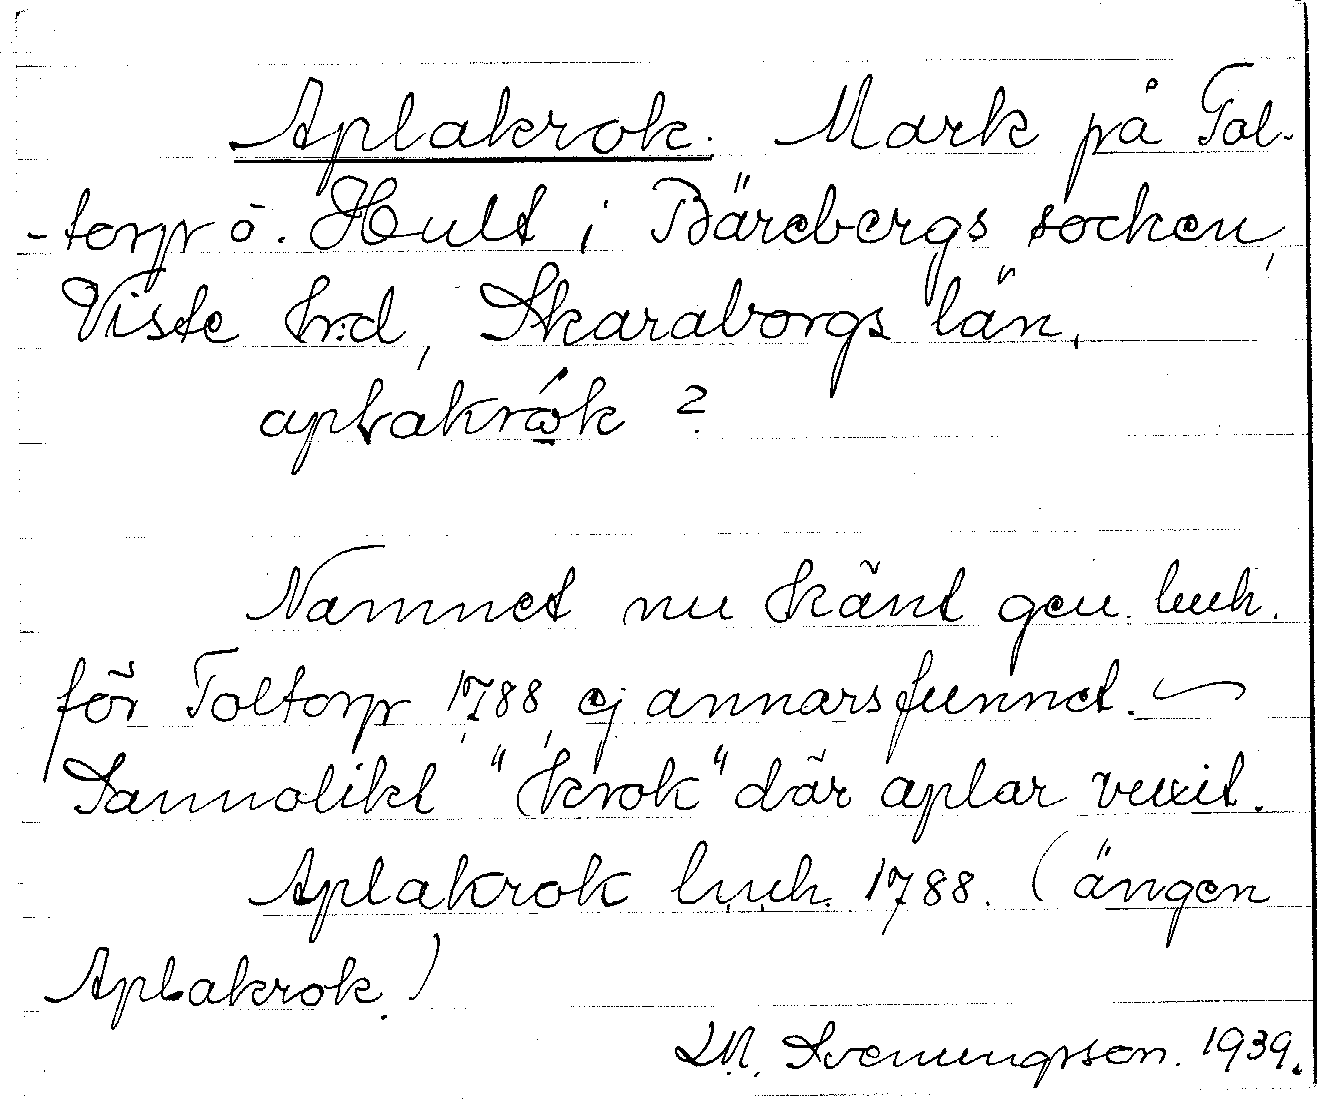 Aplakrok. Mark på Tol-
-torp o. Hult i Bärebergs socken,
Viste hrd, Skaraborgs län.
apLakrók ?
Namnet nu känt gen.
för Toltorp 1788, ej annars funnet. ~
Sannolikt "krok" där aplar vuxit.
Aplakrok 1788. (ängen
Aplakrok.)
Svenungsson. 1939.